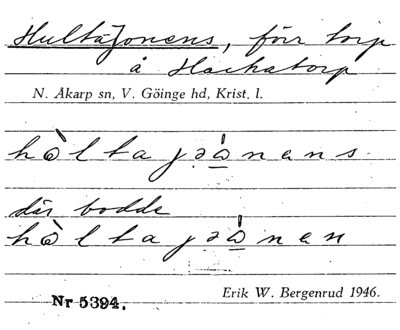 HultaJonens, förr torp
å Hackatorp
N. Åkarp sn, V. Göinge hd, Krist. l.
hòltajəȧnəns.
där bodde
hòltajəȧnən
Nr 5394.
Erik W. Bergenrud 1946.